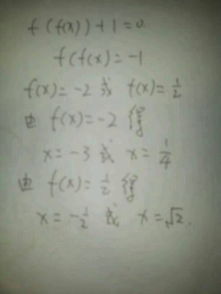 f(f(x))+1=0
f(f(x))=-1
f(x)=-2 或 f(x)=1/2
由 f(x)=-2 得
x=-3 或 x=1/4
由 f(x)=1/2 得
x=-1/2 或 x=√2.